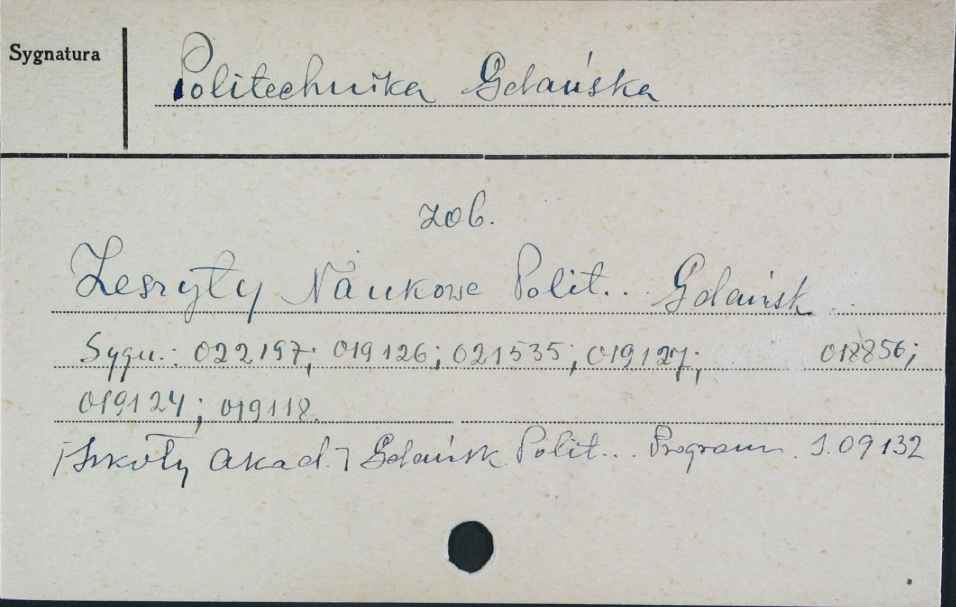 Sygnatura
Politechnika Gdańska
zob.
Zeszyty Naukowe Polit... Gdańsk
Sygn.: 022197; 019126; 021535; 019127; 018856;
019124; 019118.
[Szkoły akad.] Gdańsk. Polit... Program. S.09132